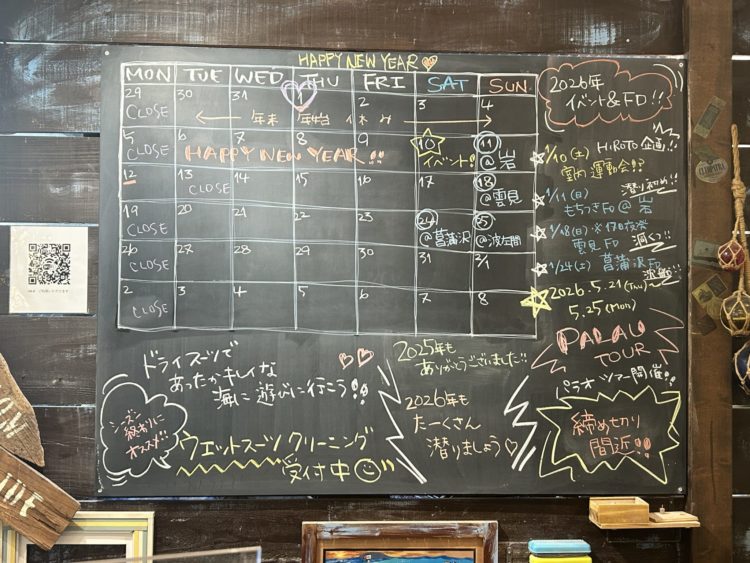 HAPPY NEW YEAR
MON TUE WED THU FRI SAT SUN
29 30 31 1 2 3 4
CLOSE ← 年末 年始 休み →
5 6 7 8 9 10 11
CLOSE HAPPY NEW YEAR!! イベント! @岩
12 13 14 15 16 17 18
CLOSE @雲見
19 20 21 22 23 24 25
CLOSE @菖蒲沢 @波左間
26 27 28 29 30 31 2/1
CLOSE
2 3 4 5 6 7 8
CLOSE
2026年
イベント&FD!!
1/10(土) HIROTO企画!!
室内運動会!?
潜り初め!!
1/11(日)
もちつきFD@岩
1/18(日)
雲見FD 洞くつ!!
1/24(土) 菖蒲沢FD
2026.5.21(THU)~
5.25(MON)
PALAU
TOUR
パラオツアー開催!!
締め切り
間近!!
ドライスーツで
あったかキレイな
海に遊びに行こう!!
シーズン
終わりに
オススメ!!
ウエットスーツクリーニング
受付中
2025年も
ありがとうございました!!
2026年も
たーくさん
潜りましょう♡